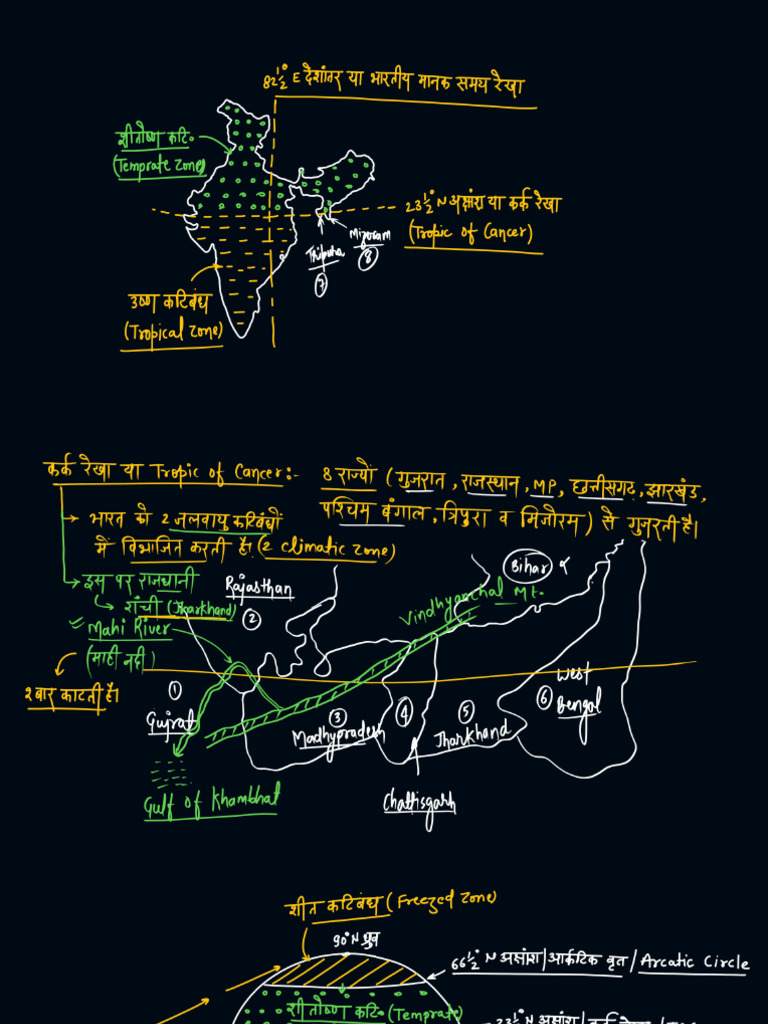 82½° E देशांतर या भारतीय मानक समय रेखा
शीतोष्ण कटि॰
(Temprate Zone)
23½° N अक्षांश या कर्क रेखा
(Tropic of Cancer)
Mizoram
⑧
Tripura
⑦
उष्ण कटिबंध
(Tropical zone)
कर्क रेखा या Tropic of Cancer:- 8 राज्यों (गुजरात, राजस्थान, MP, छत्तीसगढ़, झारखंड,
पश्चिम बंगाल, त्रिपुरा व मिजोरम) से गुजरती है।
→ भारत को 2 जलवायु कटिबंधों
में विभाजित करती है। (2 climatic zone)
→ इस पर राजधानी
→ रांची (Jharkhand)
Mahi River
(माही नदी)
2 बार काटती है।
Rajasthan
②
Bihar
Vindhyanchal Mt.
①
Gujrat
③
Madhypradesh
④
⑤
Jharkhand
⑥
West
Bengal
Chattisgarh
Gulf of Khambhat
शीत कटिबंध (Freezed Zone)
90°N ध्रुव
66½° N अक्षांश/आर्कटिक वृत/Arcatic Circle
शीतोष्ण कटि॰ (Temprate)